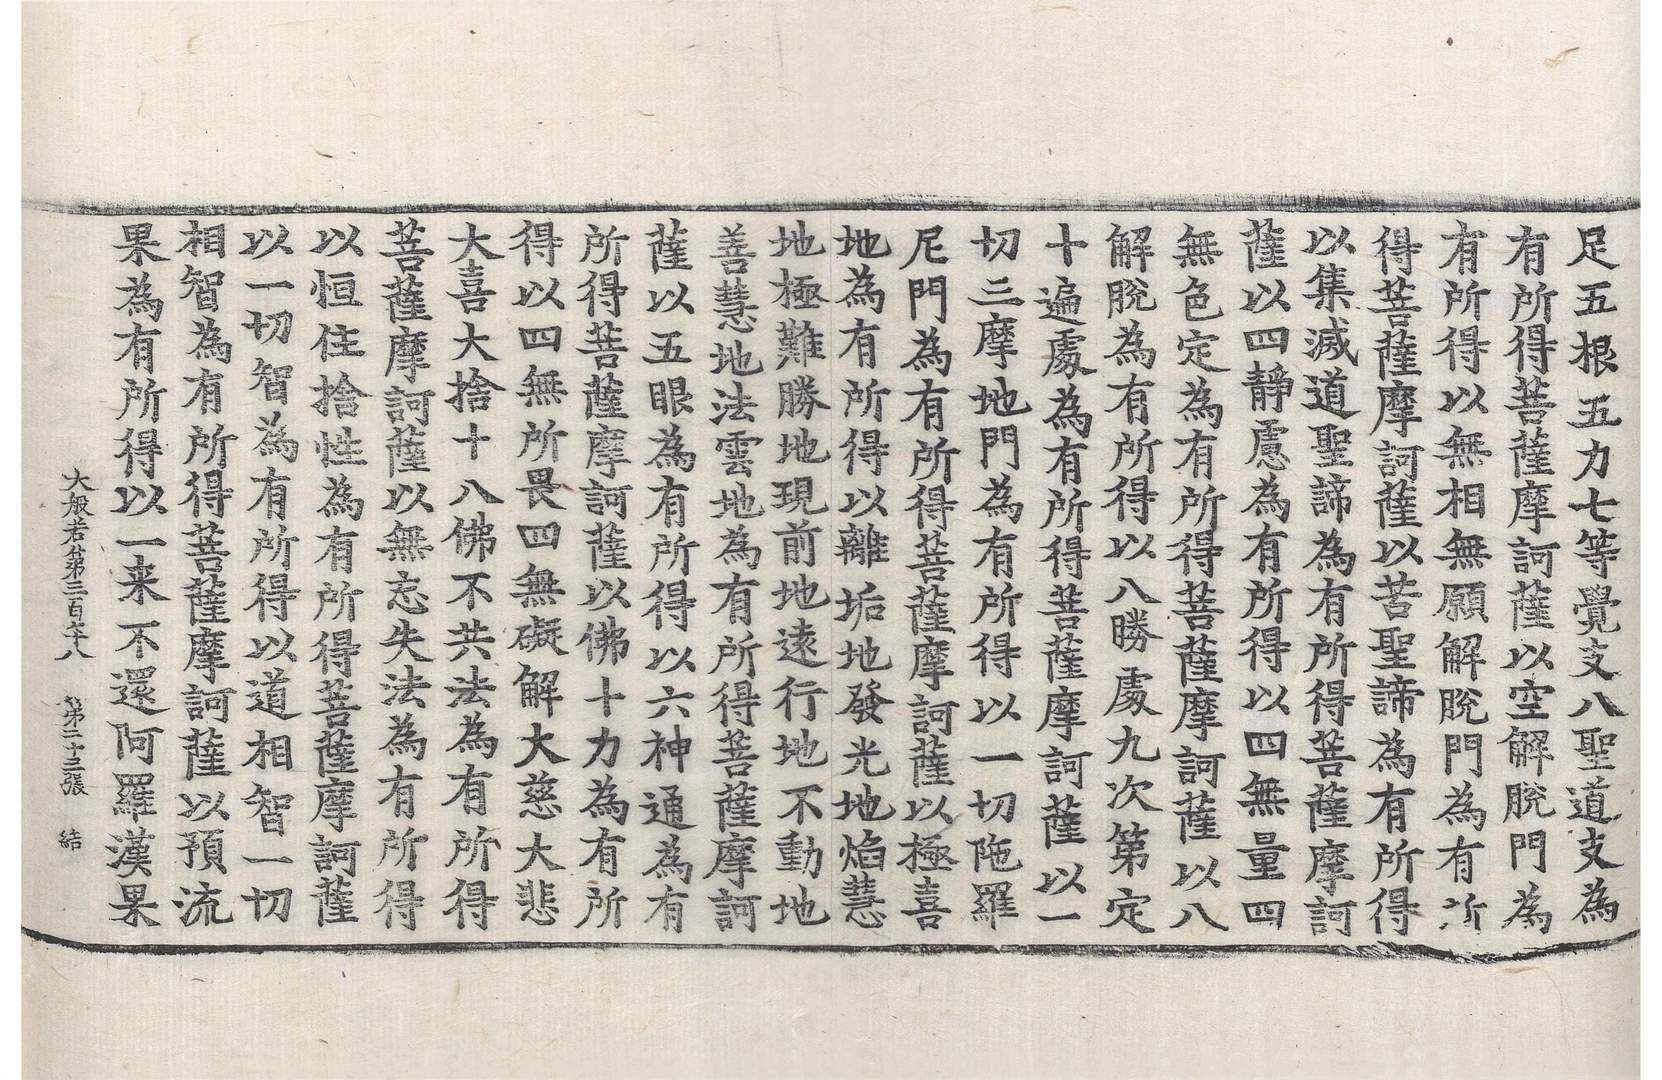 足五根五力七等覺支八聖道支為
有所得菩薩摩訶薩以空解脫門為
有所得以無相無願解脫門為有所
得菩薩摩訶薩以苦聖諦為有所得
以集滅道聖諦為有所得菩薩摩訶
薩以四靜慮為有所得以四無量四
無色定為有所得菩薩摩訶薩以八
解脫為有所得以八勝處九次第定
十遍處為有所得菩薩摩訶薩以一
切三摩地門為有所得以一切陁羅
尼門為有所得菩薩摩訶薩以極喜
地為有所得以離垢地發光地焰慧
地極難勝地現前地遠行地不動地
善慧地法雲地為有所得菩薩摩訶
薩以五眼為有所得以六神通為有
所得菩薩摩訶薩以佛十力為有所
得以四無所畏四無礙解大慈大悲
大喜大捨十八佛不共法為有所得
菩薩摩訶薩以無忘失法為有所得
以恒住捨性為有所得菩薩摩訶薩
以一切智為有所得以道相智一切
相智為有所得菩薩摩訶薩以預流
果為有所得以一来不還阿羅漢果
大般若第三百六十八 第二十三張 結